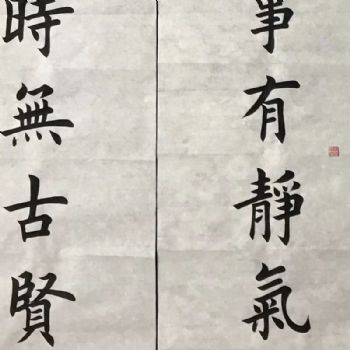 事有靜氣
時無古賢